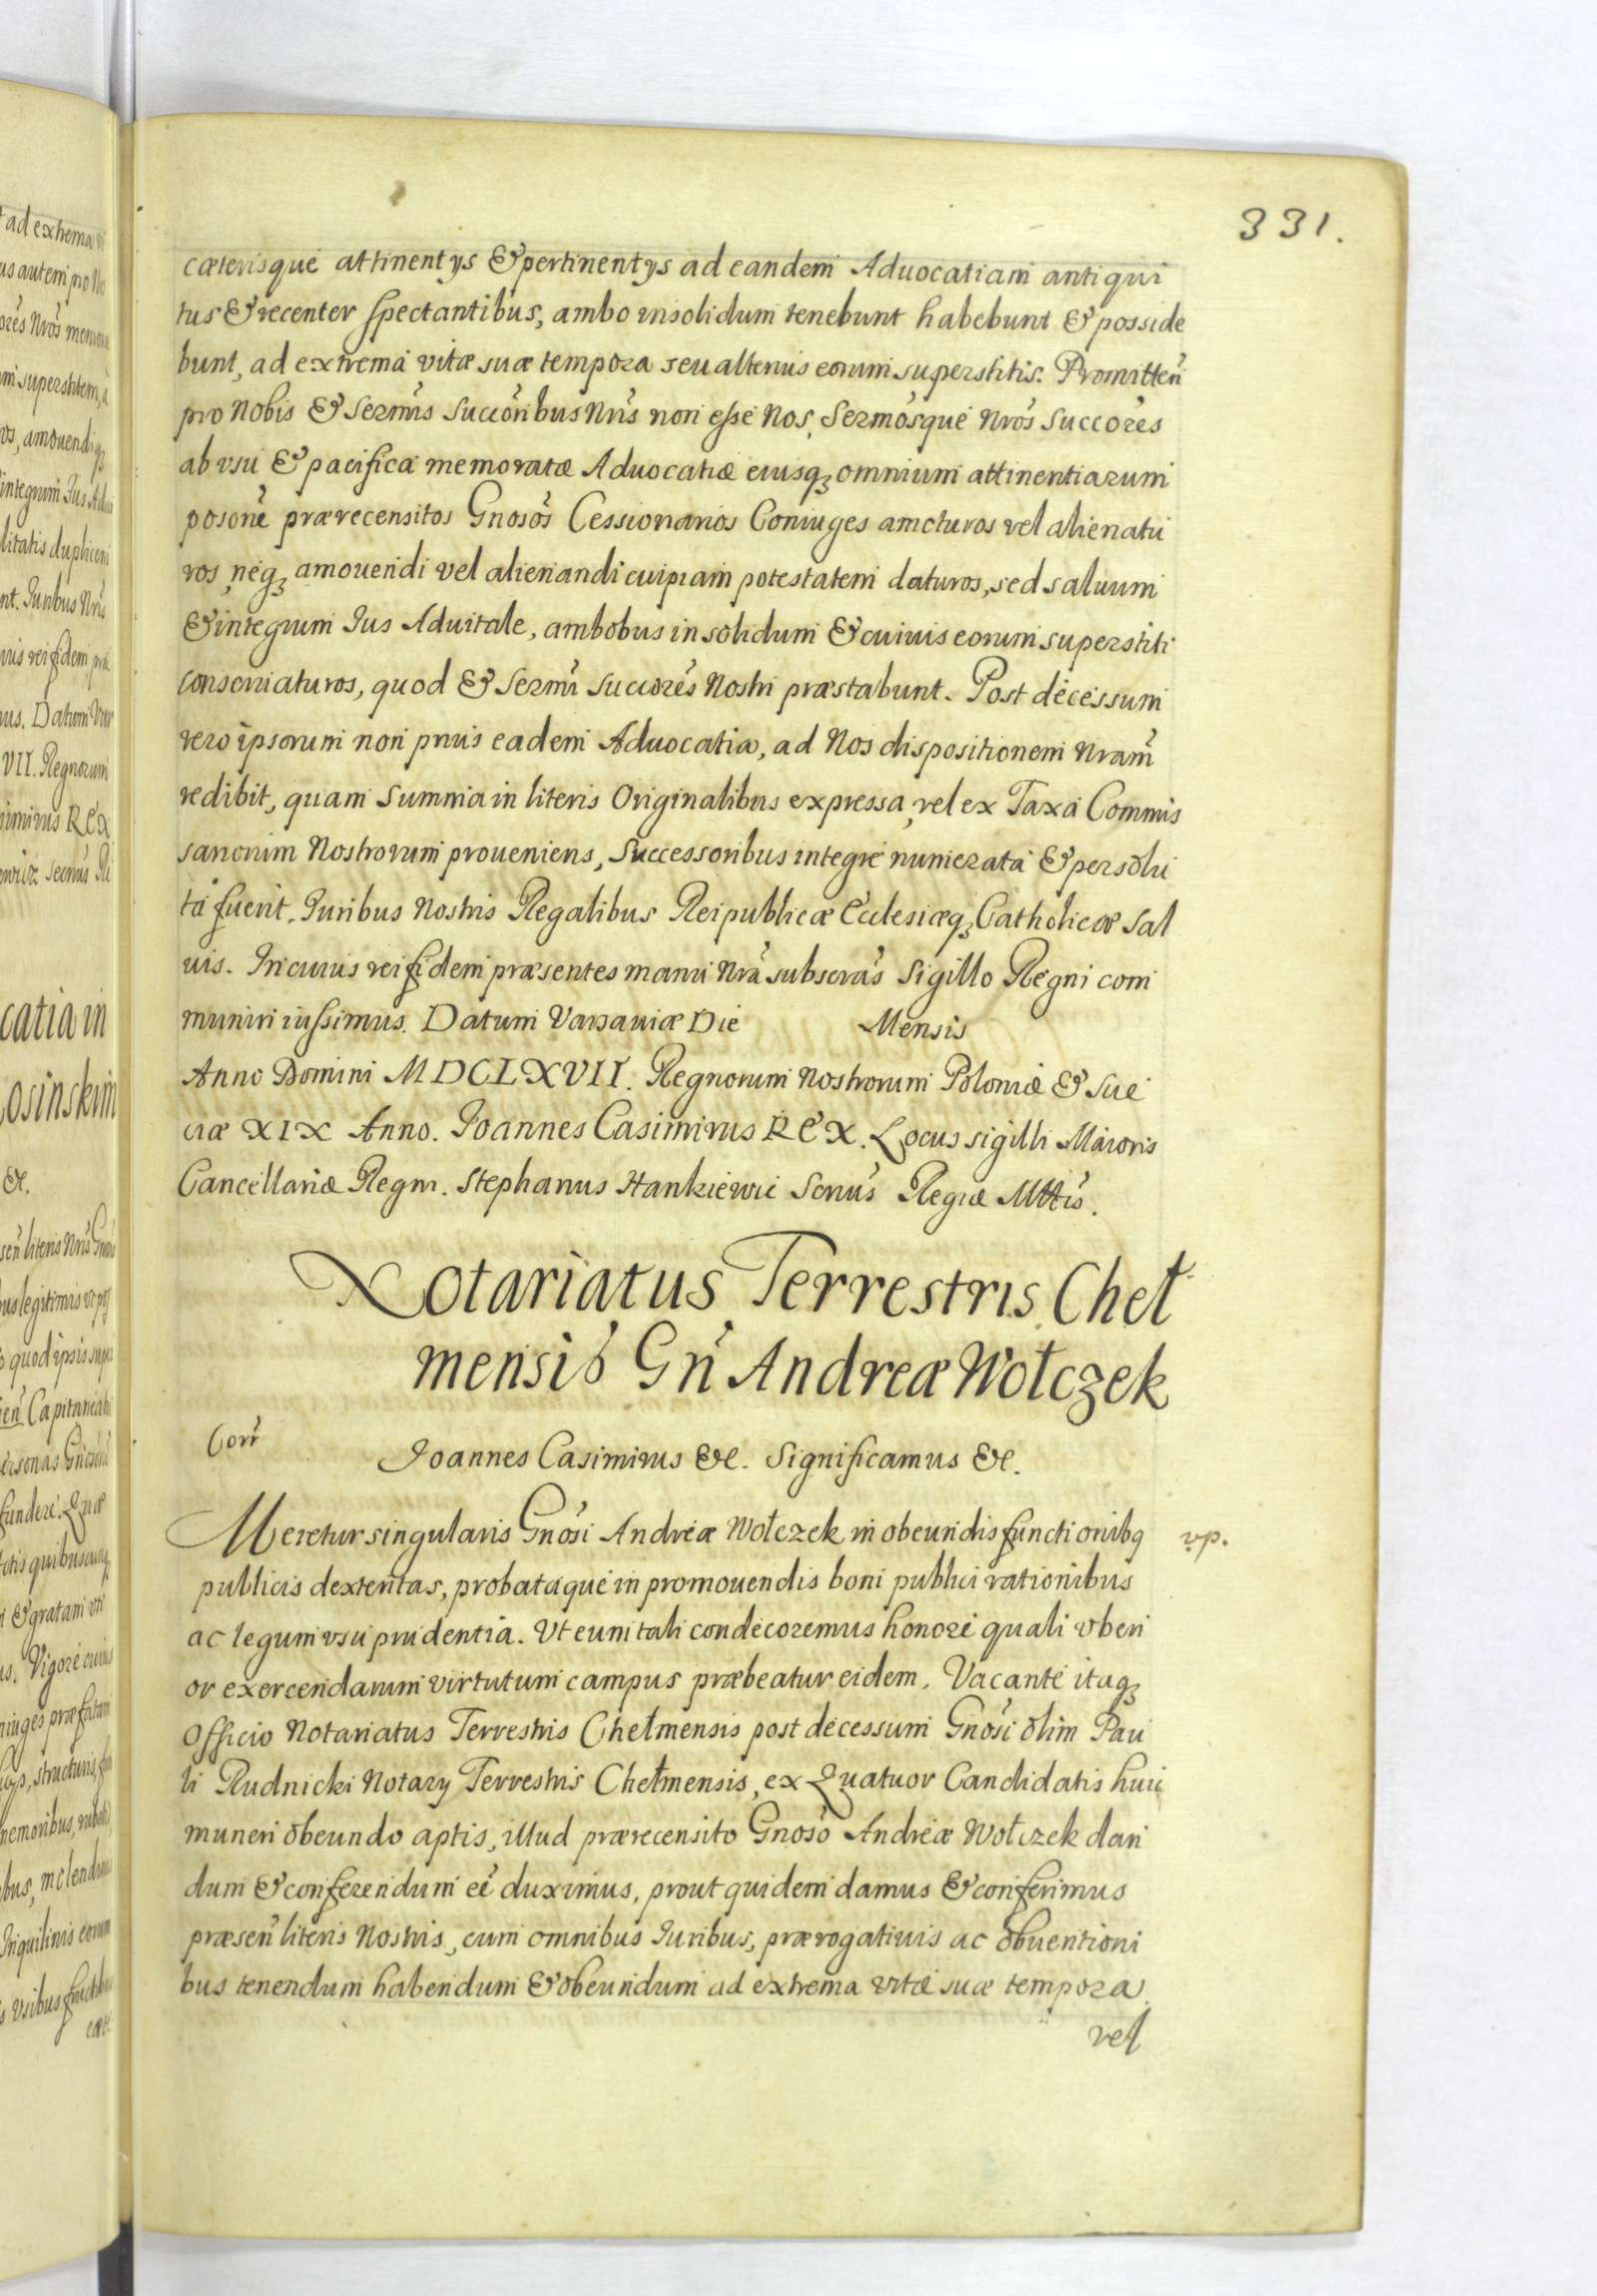 331.
cæterisque attinentys & pertinentys ad eandem Aduocatiam antiqui
tus & recenter spectantibus, ambo insolidum tenebunt habebunt & posside
bunt, ad extrema vitæ suæ tempora seu alterius eorum superstitis. Promitten
pro Nobis & Sermis Succoribus Nris non esse Nos, Sermosque Nros Succores
ab vsu & pacifica memoratæ Aduocatiæ eiusq omnium attinentiarum
posone prærecensitos Gnosos Cessionarios Coniuges amoturos vel alienatu
ros, neq amouendi vel alienandi cuipiam potestatem daturos, sed saluum
& integrum Ius Aduitale, ambobus in solidum & cuiuis eorum superstiti
conseruaturos, quod & Sermi Succores Nostri præstabunt. Post decessum
vero ipsorum non prius eadem Aduocatia, ad Nos dispositionem Nram
redibit, quam Summa in literis Originalibus expressa, vel ex Taxa Commis
sariorum Nostrorum proueniens, Successoribus integre numerata & persolu
ta fuerit. Iuribus Nostris Regalibus Reipublicæ Ecclesiæq Catholicæ sal
uis. In cuius rei fidem præsentes manu Nra subscras Sigillo Regni com
muniri iussimus. Datum Varsauiæ Die Mensis
Anno Domini MDCLXVII. Regnorum Nostrorum Poloniæ & Sue
ciæ XIX Anno. Ioannes Casimirus REX. Locus sigilli Maioris
Cancellariæ Regni. Stephanus Hankiewic Scrius Regiæ Mttis.
Notariatus Terrestris Cheł
mensis Gñ Andreæ Wołczek
Corr
Ioannes Casimirus &c. Significamus &c.
Meretur singularis Gnosi Andreæ Wołczek in obeundis functionibq vp.
publicis dexteritas, probataque in promouendis boni publici rationibus
ac legum vsu prudentia. Vt eum tali condecoremus honore quali vberi
or exercendarum virtutum campus præbeatur eidem. Vacante itaq
Officio Notariatus Terrestris Chełmensis post decessum Gnosi olim Pau
li Rudnicki Notary Terrestris Chełmensis, ex Quatuor Candidatis huic
muneri obeundo aptis, illud prærecensito Gnoso Andreæ Wołczek dan
dum & conferendum eē duximus, prout quidem damus & conferimus
præsen literis Nostris, cum omnibus Iuribus, prærogatiuis ac obuentioni
bus tenendum habendum & obeundum ad extrema vitæ suæ tempora
vel